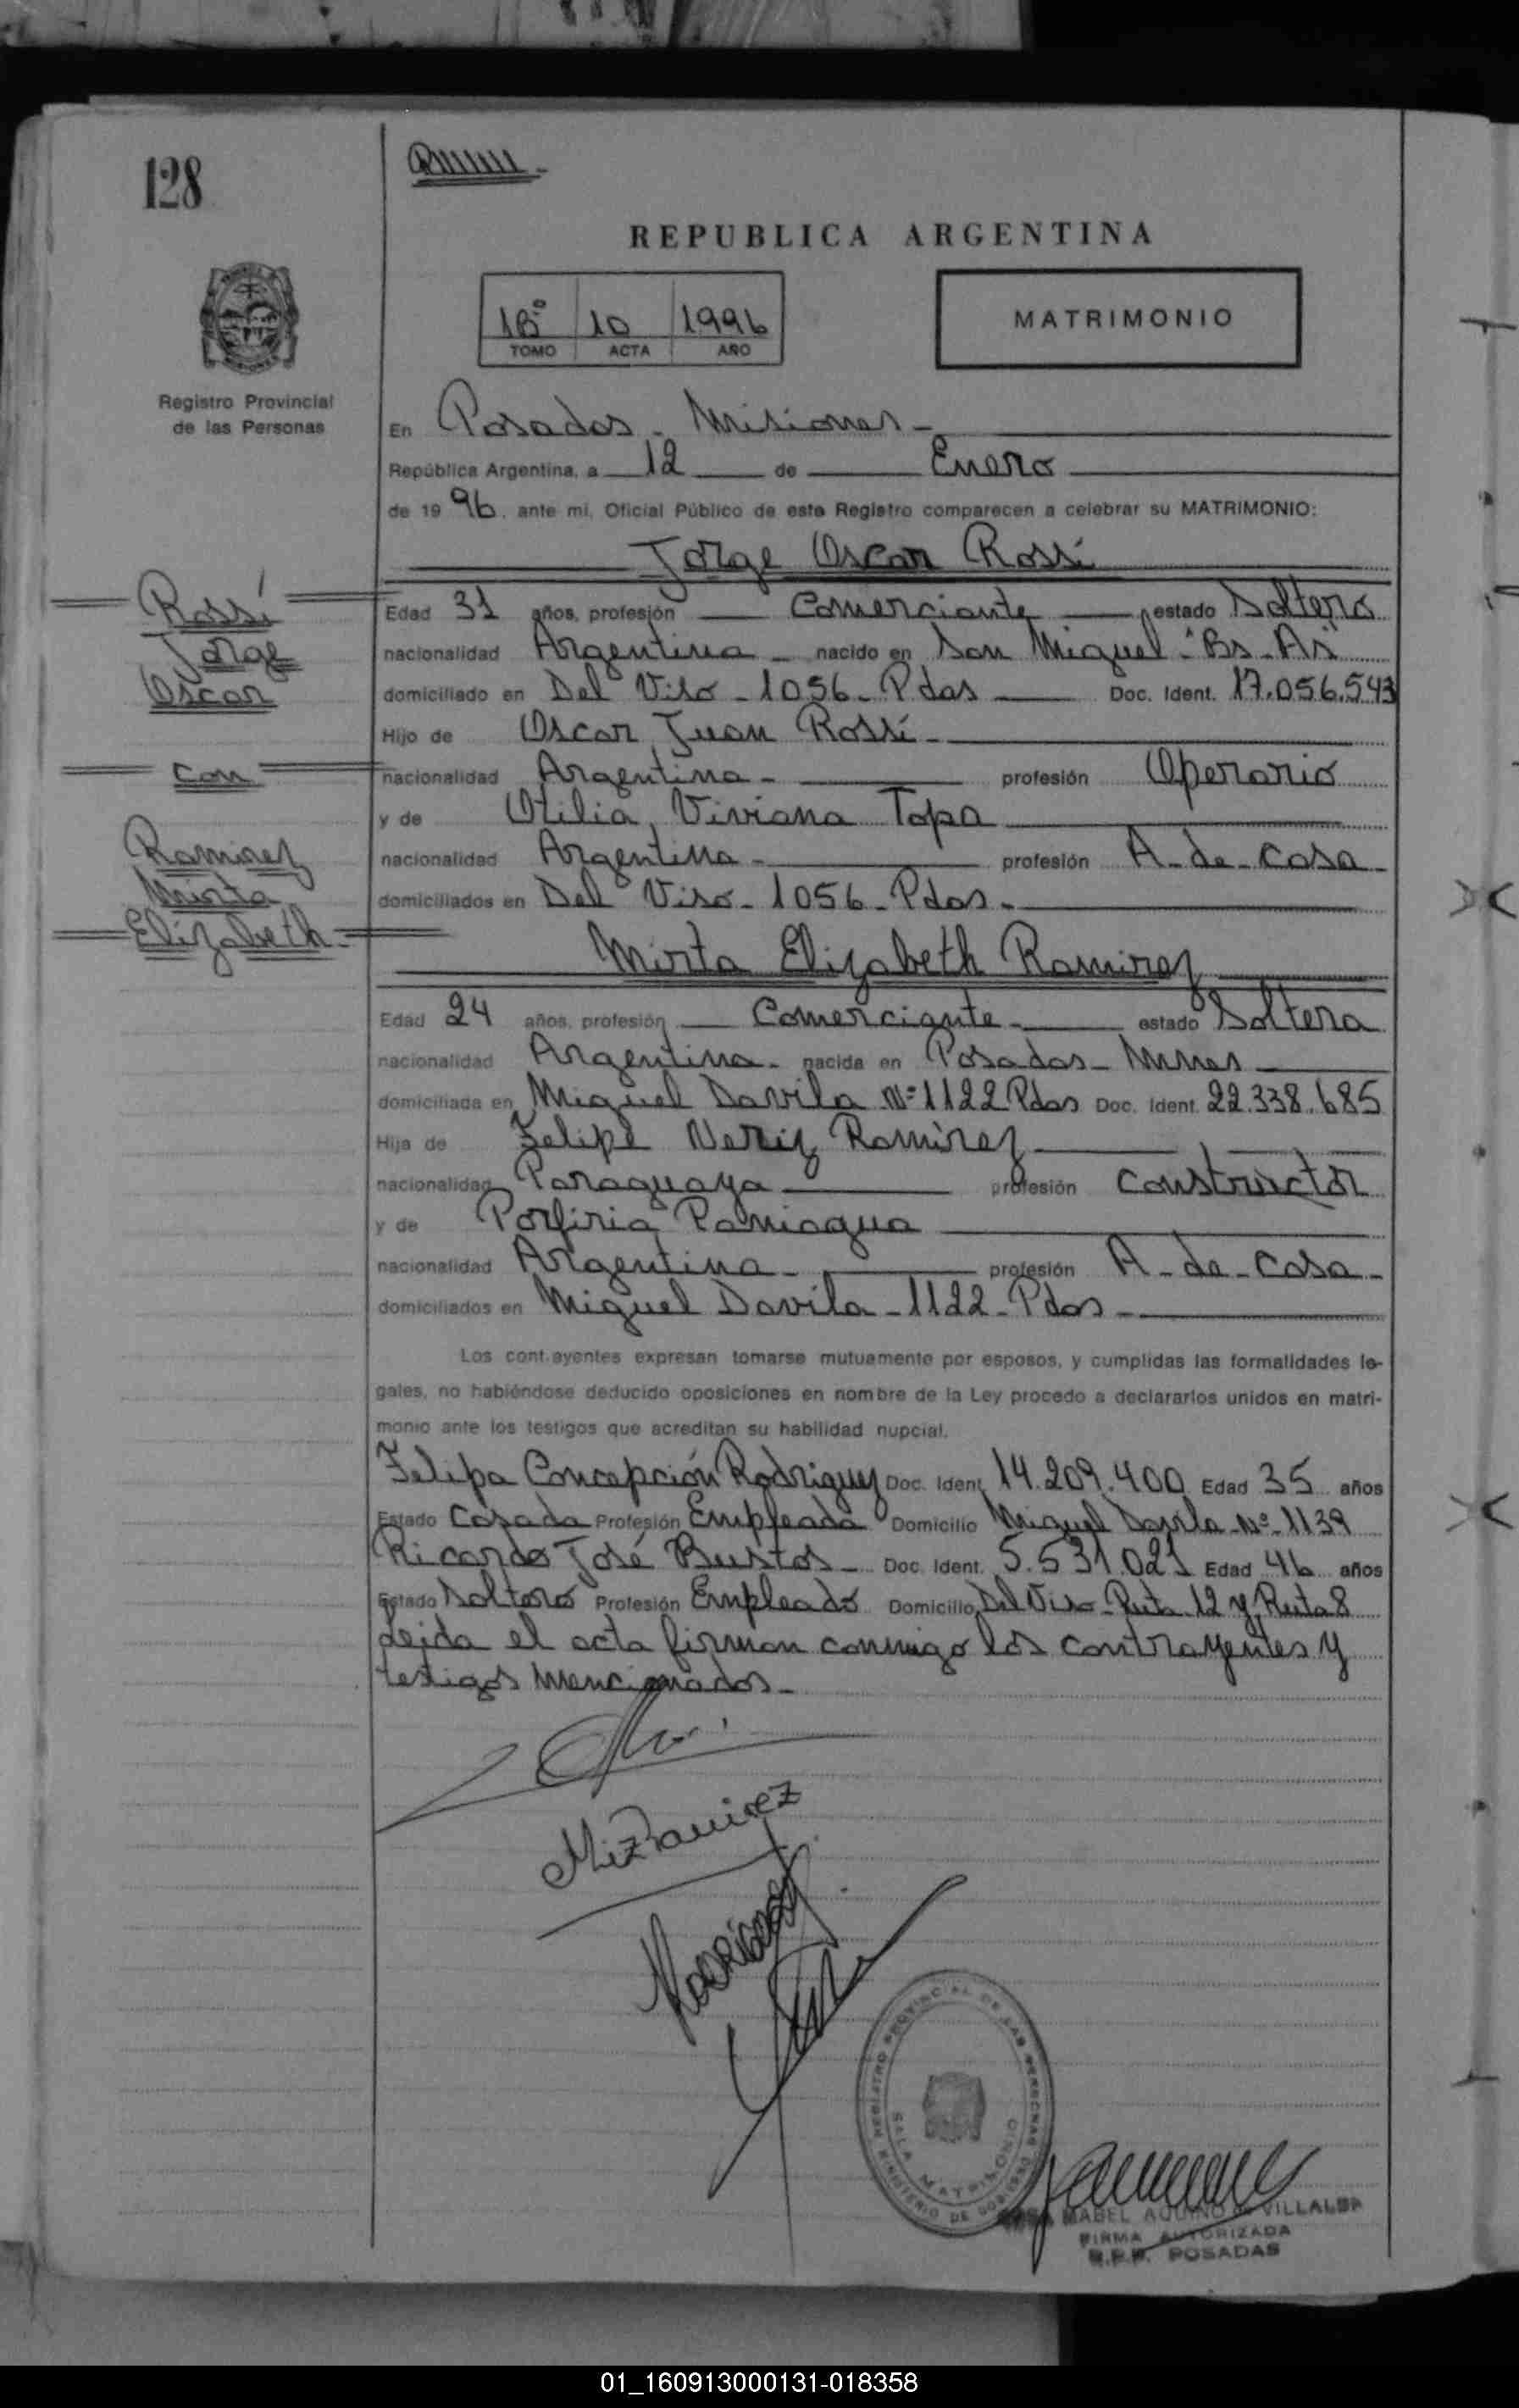 128
REPUBLICA ARGENTINA
18º 10 1996
TOMO ACTA AÑO
MATRIMONIO
Registro Provincial
de las Personas
En Posadas - Misiones -
República Argentina, a 12 de Enero
de 1996, ante mi, Oficial Público de este Registro comparecen a celebrar su MATRIMONIO:
Jorge Oscar Rossi
Rossi
Jorge
Oscar
con
Ramirez
Mirta
Elizabeth
Edad 31 años, profesión Comerciante estado Soltero
nacionalidad Argentina - nacido en San Miguel - Bs - As
domiciliado en Del Viso - 1056 - Pdas Doc. Ident. 17.056.543
Hijo de Oscar Juan Rossi -
nacionalidad Argentina - profesión Operario
y de Otilia Viviana Topa
nacionalidad Argentina - profesión A - de - casa
domiciliados en Del Viso - 1056 - Pdas -
Mirta Elizabeth Ramirez
Edad 24 años, profesión Comerciante - estado Soltera
nacionalidad Argentina - nacida en Posadas - Mnes
domiciliada en Miguel Davila Nº 1122 Pdas Doc. Ident. 22.338.685
Hija de Felipe Neriz Ramirez
nacionalidad Paraguaya profesión constructor
y de Porfiria Paniagua
nacionalidad Argentina - profesión A - de - casa -
domiciliados en Miguel Davila - 1122 - Pdas -
Los cont.ayentes expresan tomarse mutuamente por esposos, y cumplidas las formalidades le-
gales, no habiéndose deducido oposiciones en nombre de la Ley procedo a declararlos unidos en matri-
monio ante los testigos que acreditan su habilidad nupcial.
Felipa Concepción Rodriguez Doc. Ident. 14.209.400 Edad 35 años
Estado Casada Profesión Empleada Domicilio Miguel Davila Nº 1139
Ricardo José Bustos - Doc. Ident. 5.531.021 Edad 46 años
Estado Soltero Profesión Empleado Domicilio Del Viso - Ruta 12 y Ruta 8
Leida el acta firman conmigo los contrayentes y
testigos mencionados -
MizRamirez
REGISTRO PROVINCIAL DE LAS PERSONAS
SALA MATRIMONIO
MINISTERIO DE GOBIERNO
ROSA MABEL AQUINO de VILLALBA
FIRMA AUTORIZADA
R.P.P. POSADAS
01_160913000131-018358